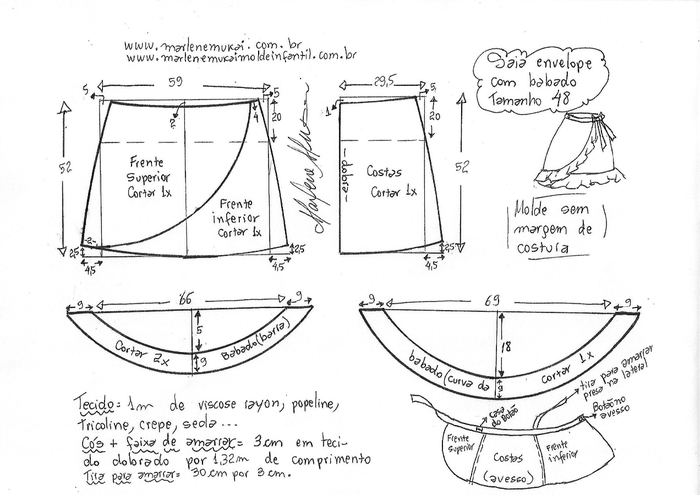 www.marlenemukai.com.br
www.marlenemukaimoldeinfantil.com.br
Saia envelope
com babado
Tamanho 48
59
5
5
4
20
2
52
Frente
Superior
Cortar 1x
Frente
inferior
Cortar 1x
2
2,5
4,5
4,5
2,5
29,5
5
1
20
dobra
Costas
Cortar 1x
52
2,5
4,5
Molde sem
margem de
costura
9
66
9
5
9
Cortar 2x
Babado (barra)
9
69
9
18
9
babado (curva da
Cortar 1x
Tecido = 1m de viscose rayon, popeline,
tricoline, crepe, seda...
Cós + faixa de amarrar = 3cm em teci-
do dobrado por 1,32m de comprimento
Tira para amarrar = 30cm por 3cm.
Casa
do Botão
tira para amarrar
presa na lateral
Botão no
avesso
Frente
Superior
Costas
(avesso)
Frente
inferior